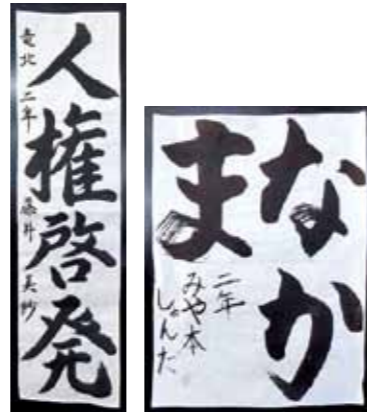 人権啓発
竜北 二年 藤井 美紗
なか
ま
二年
みや本
しゅんた